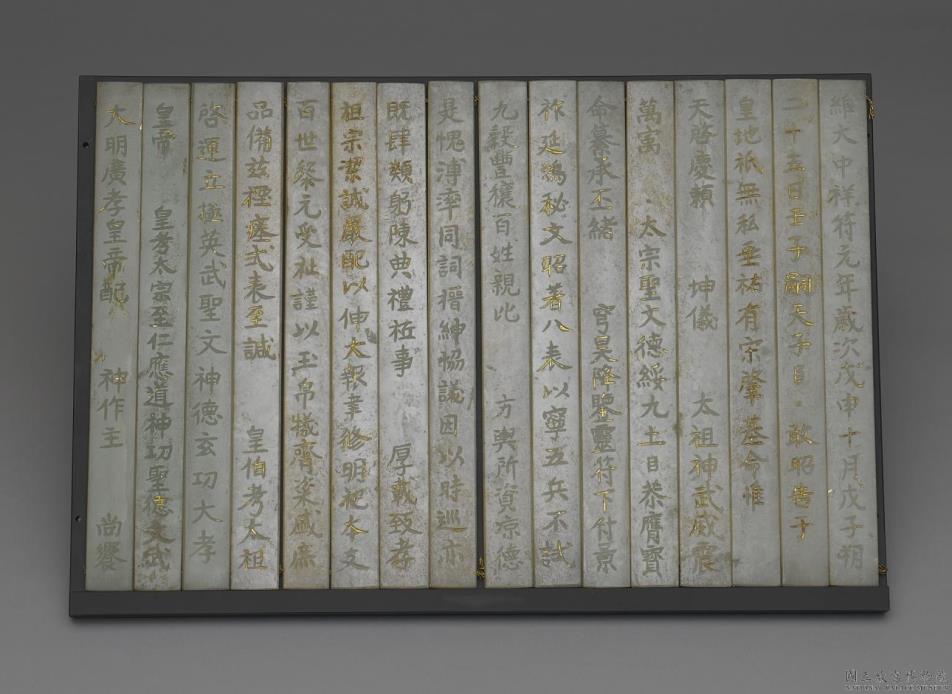 維大中祥符元年歲次戊申十月戊子朔
二十五日壬子嗣天子臣 敢昭告于
皇地祇無私垂祐有宋肇基命惟
天啓慶賴 坤儀 太祖神武威震
萬㝢 太宗聖文德綏九土臣恭膺寶
命纂承丕緒 穹昊降鑒靈符下付景
祚延鴻秘文昭著八表以寧五兵不試
九穀豐穰百姓親比 方輿所資涼德
是愧溥率同詞搢紳協議因以時巡亦
既肆類躬陳典禮祗事 厚載致孝
祖宗潔誠嚴配以伸大報聿修明祀本支
百世黎元受祉謹以玉帛犧齊粢盛庶
品備茲禋瘞式表至誠 皇伯考太祖
啓運立極英武聖文神德玄功大孝
皇帝 皇考太宗至仁應道神功聖德文武
大明廣孝皇帝配 神作主 尚饗
國立故宮博物院
NATIONAL PALACE MUSEUM